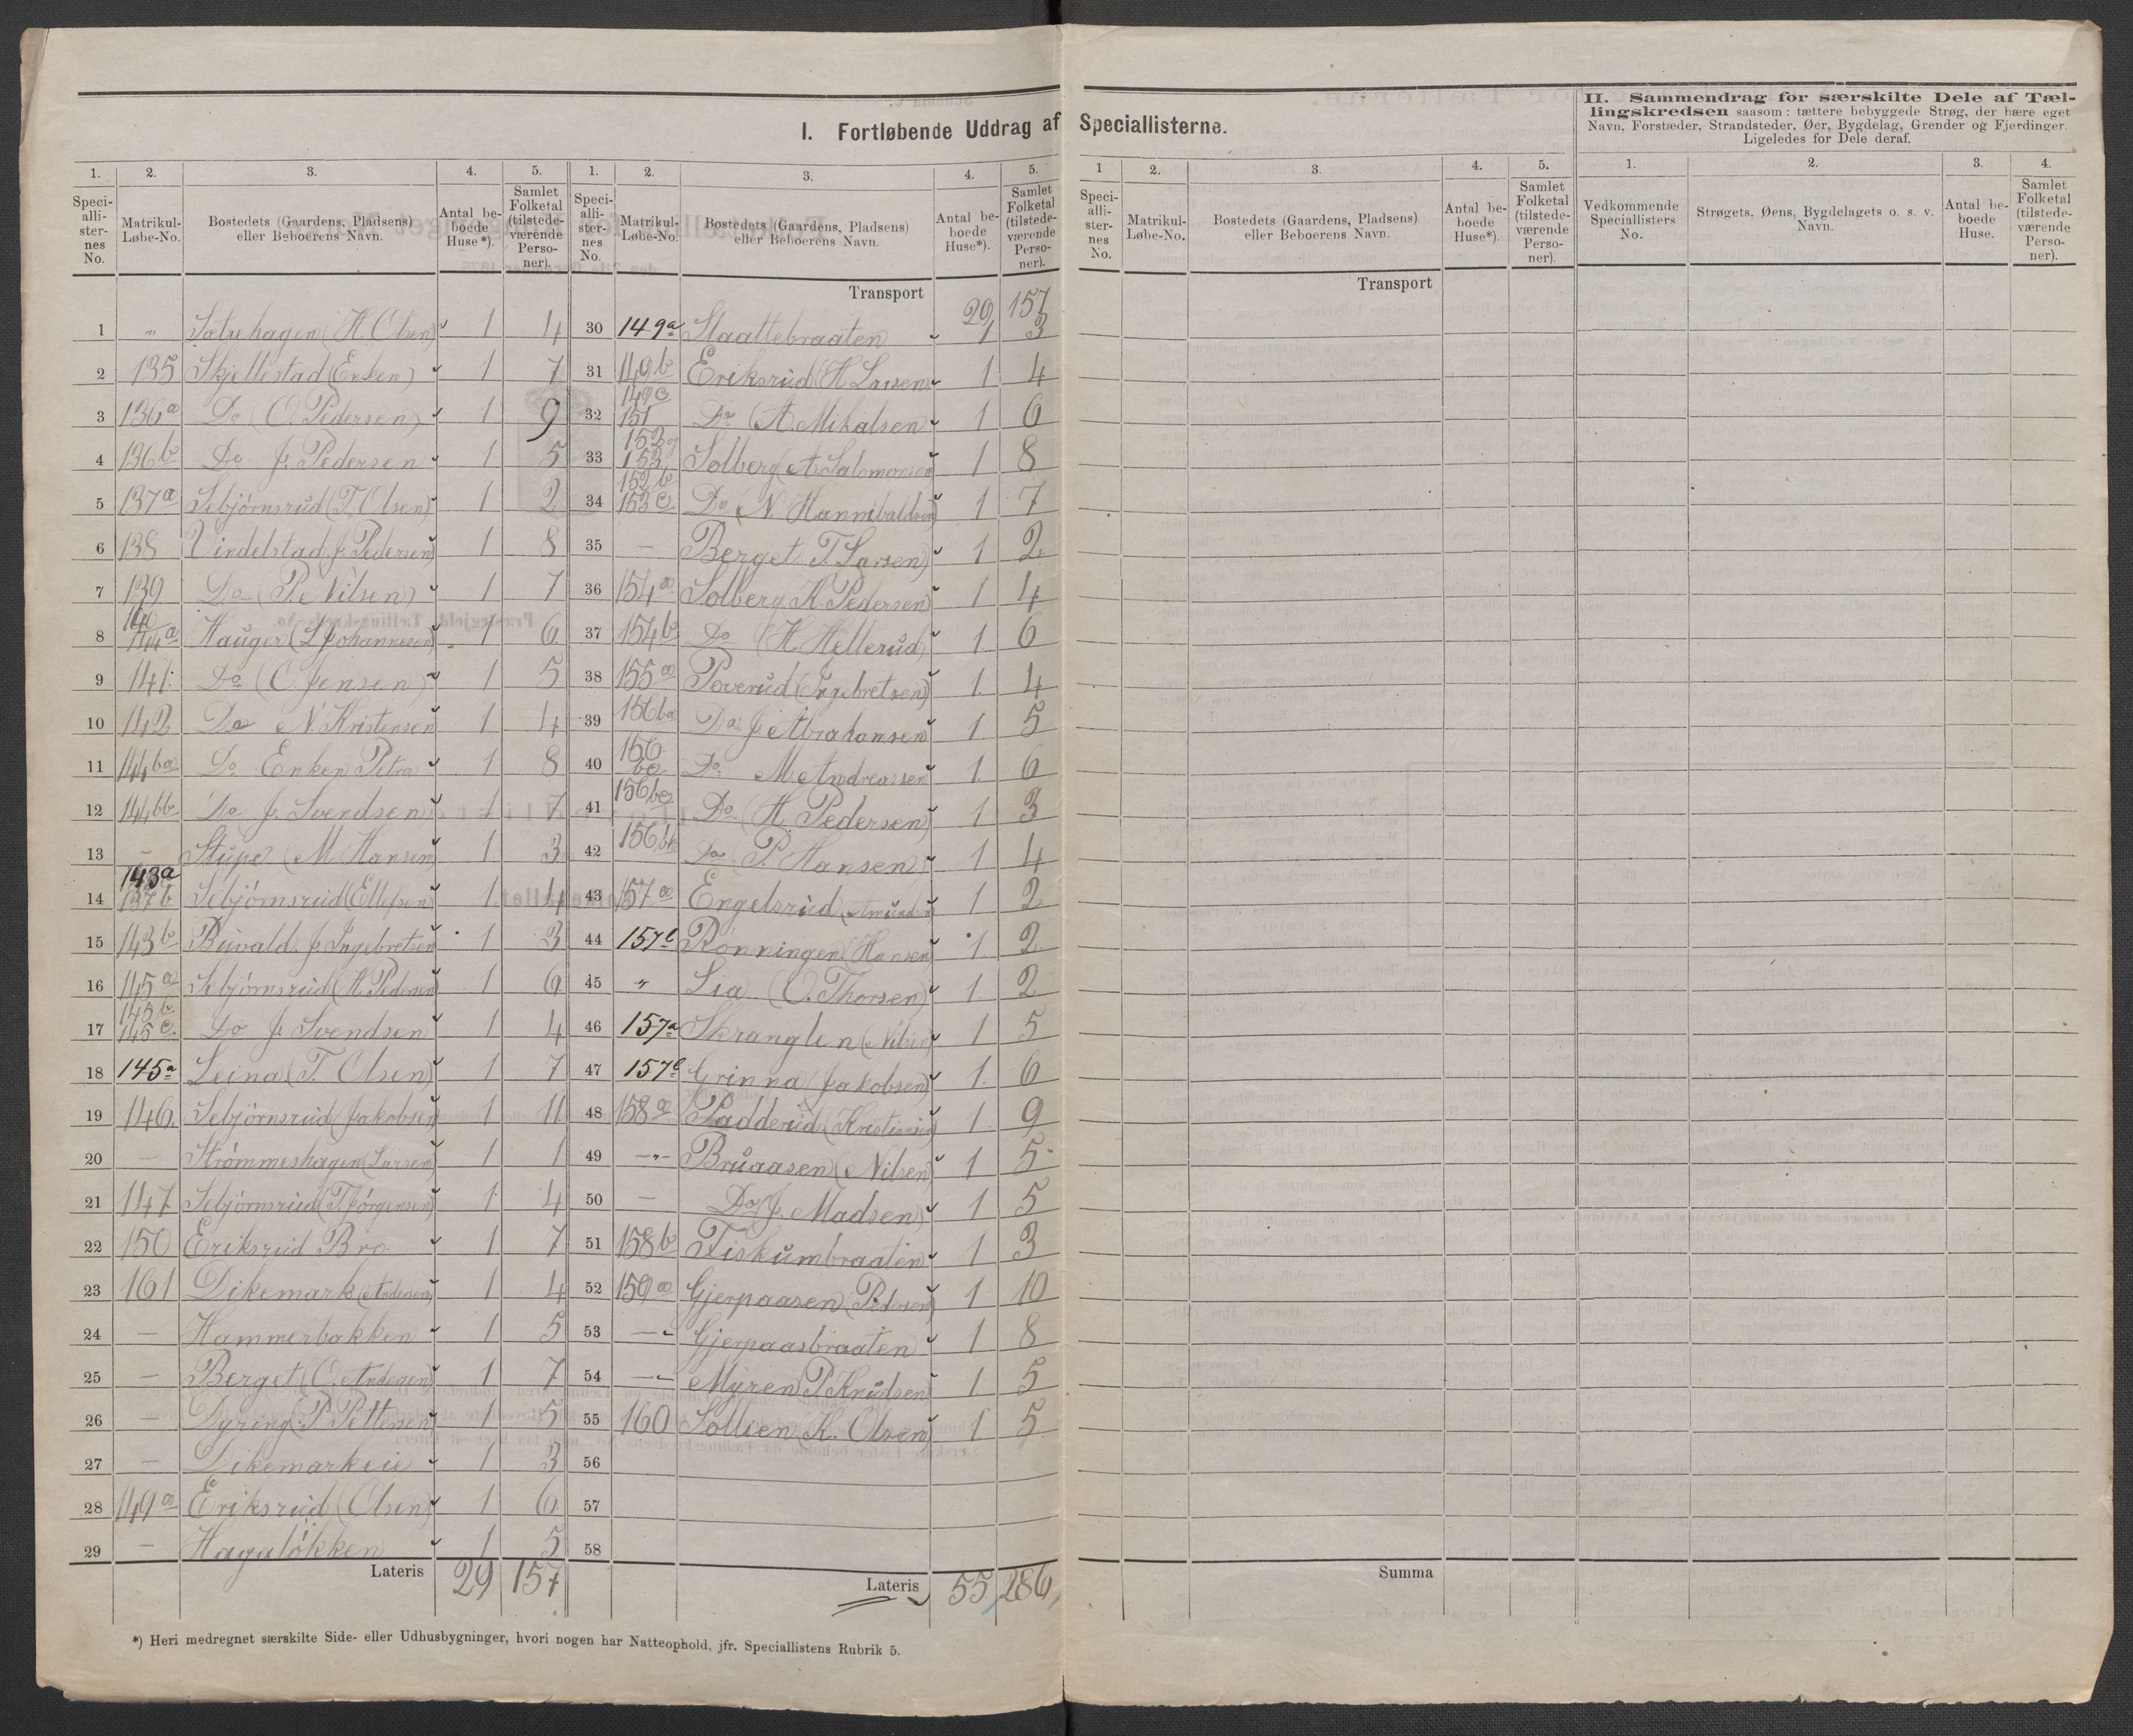 I. Fortløbende Uddrag af Speciallisterne.
II. Sammendrag for særskilte Dele af Tæl-
lingskredsen saasom: tættere bebyggede Strøg, der bære eget
Navn, Forstæder, Strandsteder, Øer, Bygdelag, Grender og Fjerdinger.
Ligeledes for Dele deraf.
1. 2. 3. 4. 5.
Speci-alli-ster-nes No. Matrikul-Løbe-No. Bostedets (Gaardens, Pladsens) eller Beboerens Navn. Antal be-boede Huse*). Samlet Folketal (tilstede-værende Perso-ner).
1 " Sætrehagen (H. Olsen) 1 4
2 135 Skjellestad (Enken) 1 7
3 136a Do (O. Pedersen) 1 9
4 136b Do J. Pedersen 1 5
5 137a Sebjørnsrud (T. Olsen) 1 2
6 138 Vindelstad J. Pedersen) 1 8
7 139 Do (P. Nilsen) 1 7
8 140 144a Hauger (L Johannesen) 1 6
9 141 Do (O. Jensen) 1 5
10 142 Do N. Kristensen 1 4
11 144ba Do Enken Petra 1 8
12 144bb Do J. Svendsen 1 7
13 — Stupe (M Hansen) 1 3
14 143a 137b Sebjørnsrud (Ellefsen) 1 4
15 143b Buvald. J. Ingebretsen 1 3
16 145a Sebjørnsrud (A. Pedersen) 1 6
17 145b 145c Do J. Svendsen 1 4
18 145a Leina (T. Olsen) 1 7
19 146. Sebjørnsrud (Jakobsen 1 11
20 — Strømmeshagen (Larsen) 1 1
21 147 Sebjørnsrud (T. Jørgensen) 1 4
22 150 Eriksrud Bro 1 7
23 161 Dikemark (Andersen) 1 4
24 — Hammerbakken 1 5
25 — Berget (O. Andersen) 1 7
26 — Dyring (P. Pettersen) 1 5
27 — Dikemarkeie 1 3
28 149a Eriksrud (Olsen) 1 6
29 — Hagaløkken 1 5
Lateris 29 157
1. 2. 3. 4. 5.
Speci-alli-ster-nes No. Matrikul-Løbe-No. Bostedets (Gaardens, Pladsens) eller Beboerens Navn. Antal be-boede Huse*). Samlet Folketal (tilstede-værende Perso-ner).
Transport 29 157
30 149a Slaattebraaten 1 3
31 149b Eriksrud (H Larsen 1 4
32 149c 151 Do (A. Mikalsen 1 6
33 Solberg (A. Salomonsen 1 8
34 152b 153c Do (N. Hannibaldsen) 1 7
35 — Berget T. Larsen) 1 2
36 154a Solberg K. Pedersen) 1 4
37 154b Do (H. Hellerud) 1 6
38 155a Poverud (Ingebretsen) 1 4
39 156ba Do J. Abrahamsen) 1 5
40 Do M. Andreassen 1 6
41 Do (H. Pedersen) 1 3
42 Do (P. Hansen) 1 4
43 157a Engelsrud 1 2
44 157b Rønningen (Hansen 1 2
45 " Lia (O. Thorsen) 1 2
46 157a Skranglen (Nilsen) 1 5
47 157b Grinna (Jakobsen) 1 6
48 158a Padderud (Kristiansen) 1 9
49 —"— Bruaasen (Nilsen) 1 5
50 — Do (J. Madsen) 1 5
51 158b Fiskumbraaten 1 3
52 159a Gjerpaasen (Pedersen) 1 10
53 — Gjerpaasbraaten 1 8
54 — Myren P. Knudsen) 1 5
55 160 Sollien (K. Olsen) 1 5
56
57
58
Lateris 55 286
1 2. 3. 4. 5.
Speci-alli-ster-nes No. Matrikul-Løbe-No. Bostedets (Gaardens, Pladsens) eller Beboerens Navn. Antal be-boede Huse*). Samlet Folketal (tilstede-værende Perso-ner).
Transport
Summa
1. 2. 3. 4.
Vedkommende Speciallisters No. Strøgets, Øens, Bygdelagets o. s. v. Navn. Antal be-boede Huse. Samlet Folketal (tilstede-værende Perso-ner).
*) Heri medregnet særskilte Side- eller Udhusbygninger, hvori nogen har Natteophold, jfr. Speciallistens Rubrik 5.